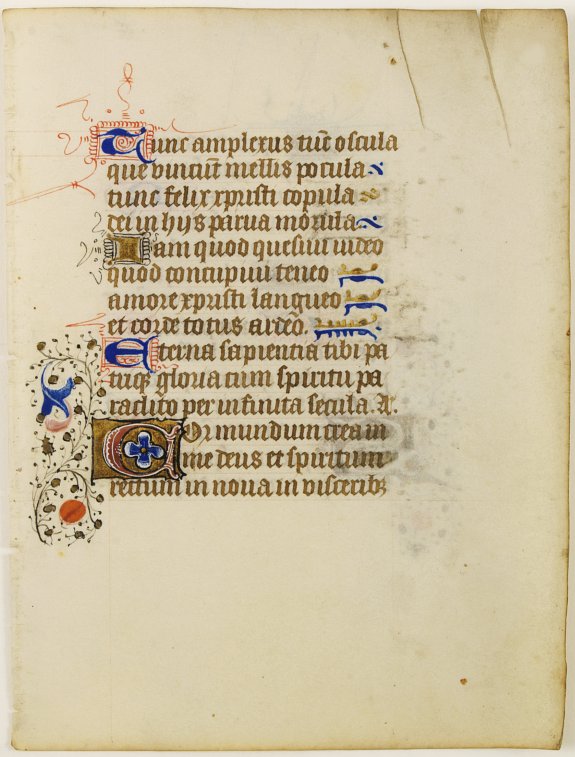 Tunc amplexus tuū oscula
que vincūt mellis pocula
tunc felix xpristi copula
dei in hijs parua mōrula
Iam quod quesiui video
quod concupiui teneo
amore xpristi langueo
et corde totus ardeō.
Eterna sapiencia tibi pa
triqꝫ gloria cum spiritu pa
raclito per infinita secula. A.
Cor mundum crea in
me deus et spiritum
rectum in noua in visceribꝫ